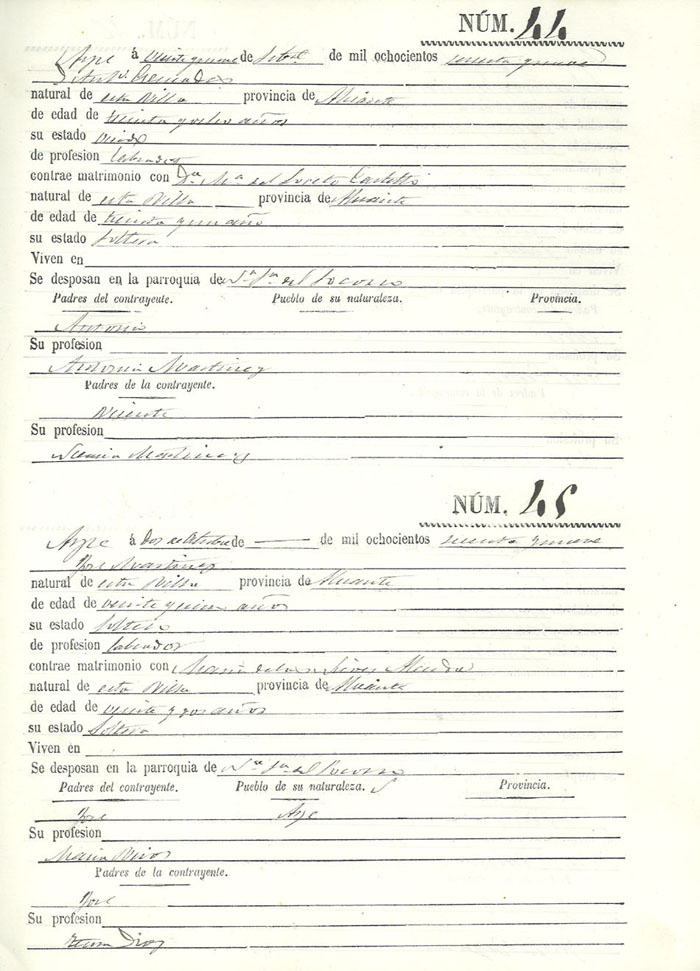 NÚM. 44
Aspe á veinte y nueve de de mil ochocientos sesenta y nueve
Antº
natural de esta Villa provincia de Alicante
de edad de treinta y ocho años
su estado Viudo
de profesion Labrador
contrae matrimonio con Dª Mª del Loreto
natural de esta Villa provincia de Alicante
de edad de treinta y un año
su estado Soltera
Viven en
Se desposan en la parroquia de Nª Sª del Socorro
Padres del contrayente. Pueblo de su naturaleza. Provincia.
Antonio
Su profesion
Antonia Martinez
Padres de la contrayente.
Vicente
Su profesion
Martinez
NÚM. 45
Aspe á Dos de Octubre de — de mil ochocientos sesenta y nueve
Jose Martinez
natural de esta Villa provincia de Alicante
de edad de veinte y años
su estado Soltero
de profesion Labrador
contrae matrimonio con Maria de las Nieves
natural de esta Villa provincia de Alicante
de edad de veinte y dos años
su estado Soltera
Viven en
Se desposan en la parroquia de Nª Sª del Socorro
Padres del contrayente. Pueblo de su naturaleza. Provincia.
Jose Aspe
Su profesion
Maria
Padres de la contrayente.
Jose
Su profesion